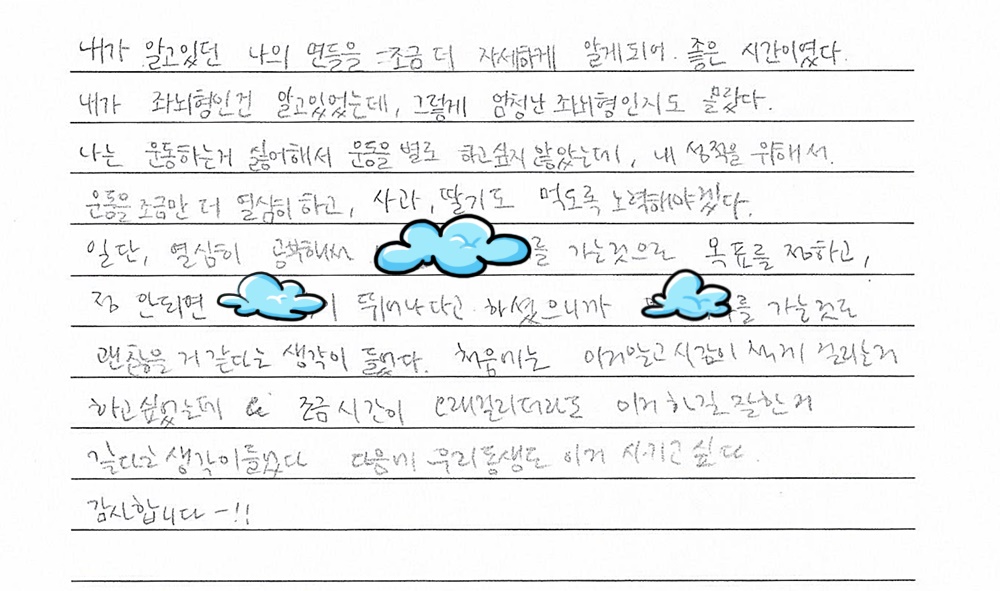 내가 알고있던 나의 면들을 조금 더 자세하게 알게되어 좋은 시간이였다.
내가 좌뇌형인건 알고있었는데, 그렇게 엄청난 좌뇌형인지도 몰랐다.
나는 운동하는거 싫어해서 운동을 별로 하고싶지 않았는데, 내 성적을 위해서.
운동을 조금만 더 열심히 하고, 사과, 딸기도 먹도록 노력해야겠다.
일단, 열심히 공부해서 를 가는것으로 목표를 정하고,
정 안되면 이 뛰어나다고 하셨으니까 를 가는것도
괜찮을 거 같다는 생각이 들었다. 처음에는 이거말고 시간이 적게 걸리는거
하고싶었는데 조금 시간이 오래걸리더라도 이거 하길 잘한거
같다고 생각이들었다 다음에 우리동생도 이거 시키고 싶다.
감사합니다-!!